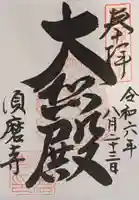 奉拝
令和二年
八月二十三日
大悲殿
須磨寺